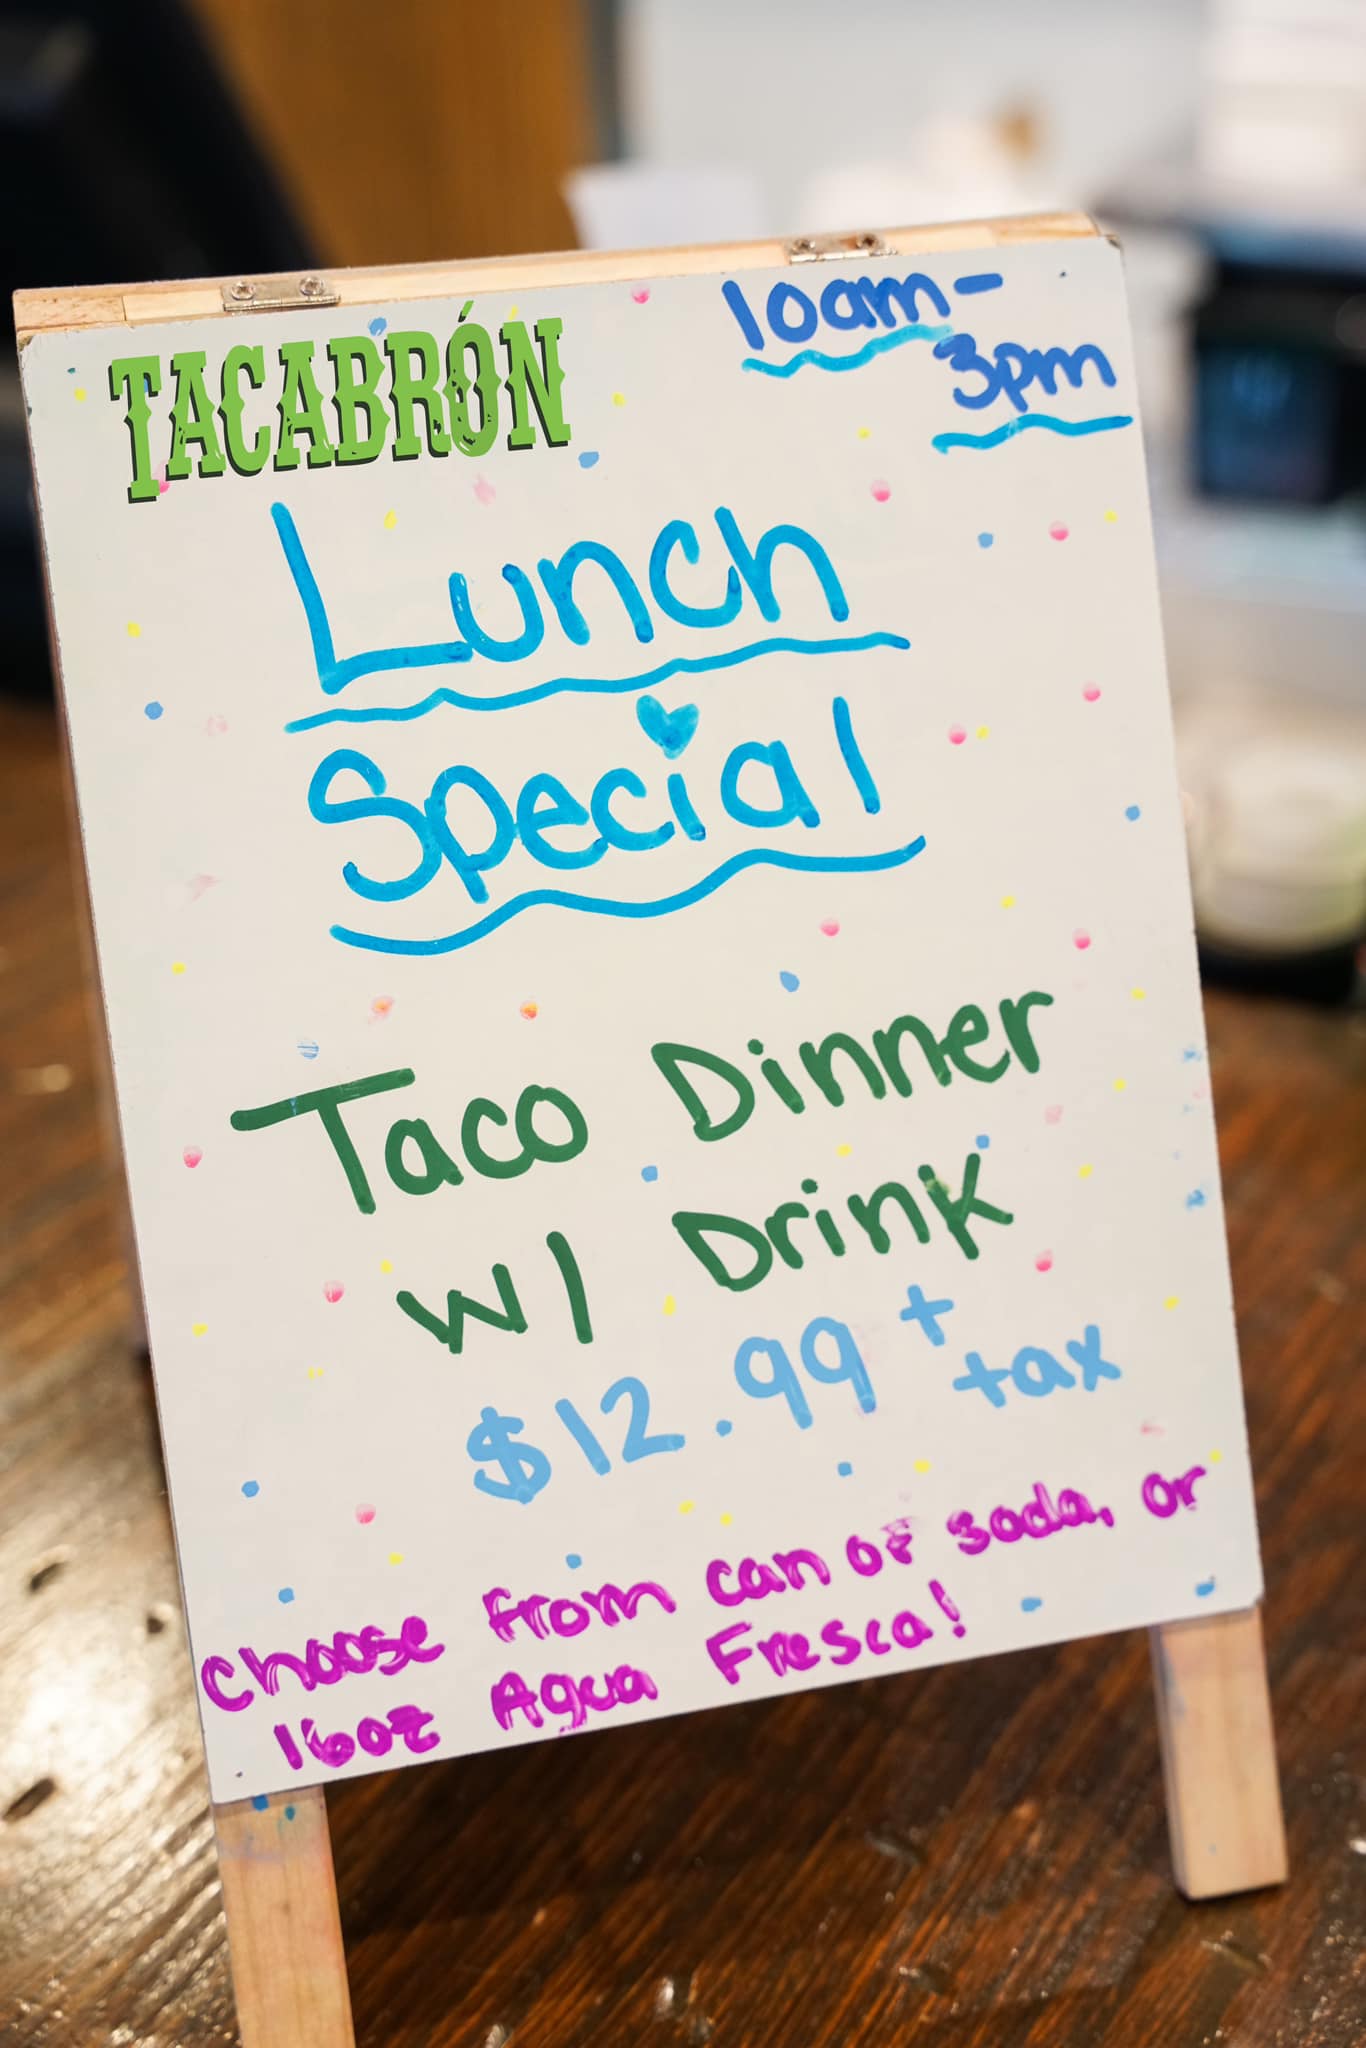 TACABRÓN
10am-
3pm
Lunch
Special
Taco Dinner
w/ Drink
$12.99 +
tax
Choose from can of soda, or
16oz Agua Fresca!